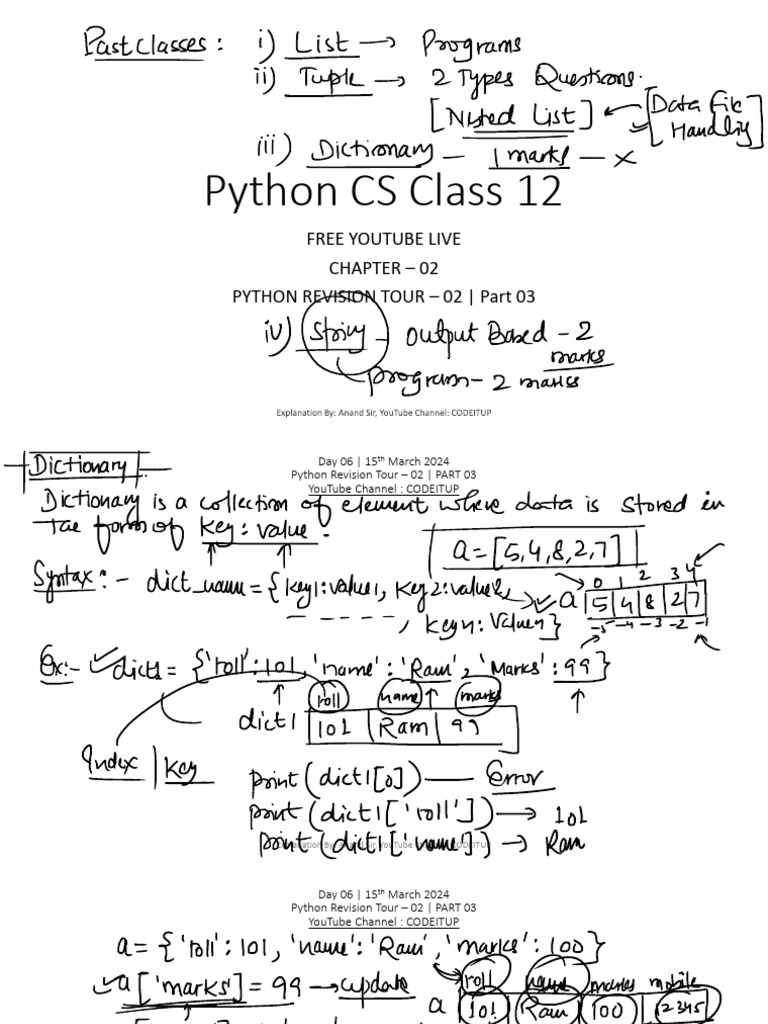 Past Classes : i) List → Programs
ii) Tuple → 2 Types Questions.
[Nested List] [Data File
Handling]
iii) Dictionary – 1 marks – x
Python CS Class 12
FREE YOUTUBE LIVE
CHAPTER – 02
PYTHON REVISION TOUR – 02 | Part 03
iv) String – Output Based – 2
marks
program – 2 marks
Explanation By: Anand Sir, YouTube Channel: CODEITUP
Day 06 | 15th March 2024
Python Revision Tour – 02 | PART 03
YouTube Channel : CODEITUP
Dictionary
Dictionary is a collection of element where data is stored in
the form of Key : value.
a = [5,4,8,2,7]
Syntax :- dict_name = {key1:value1, key2:value2,
- - - - - , keyn: Valuen}
0 1 2 3 4
a 5 4 8 2 7
-5 -4 -3 -2 -1
Ex:- dict1 = {'roll':101, 'name':'Ram', 'Marks':99}
roll name marks
dict1 101 Ram 99
Index | Key
print(dict1[0]) — Error
print(dict1['roll']) → 101
print(dict1['name']) → Ram
Explanation By: Anand Sir, YouTube Channel: CODEITUP
Day 06 | 15th March 2024
Python Revision Tour – 02 | PART 03
YouTube Channel : CODEITUP
a = {'roll': 101, 'name':'Ram', 'marks': 100}
a['marks'] = 99 → update
roll name marks mobile
a 101 Ram 100 2345